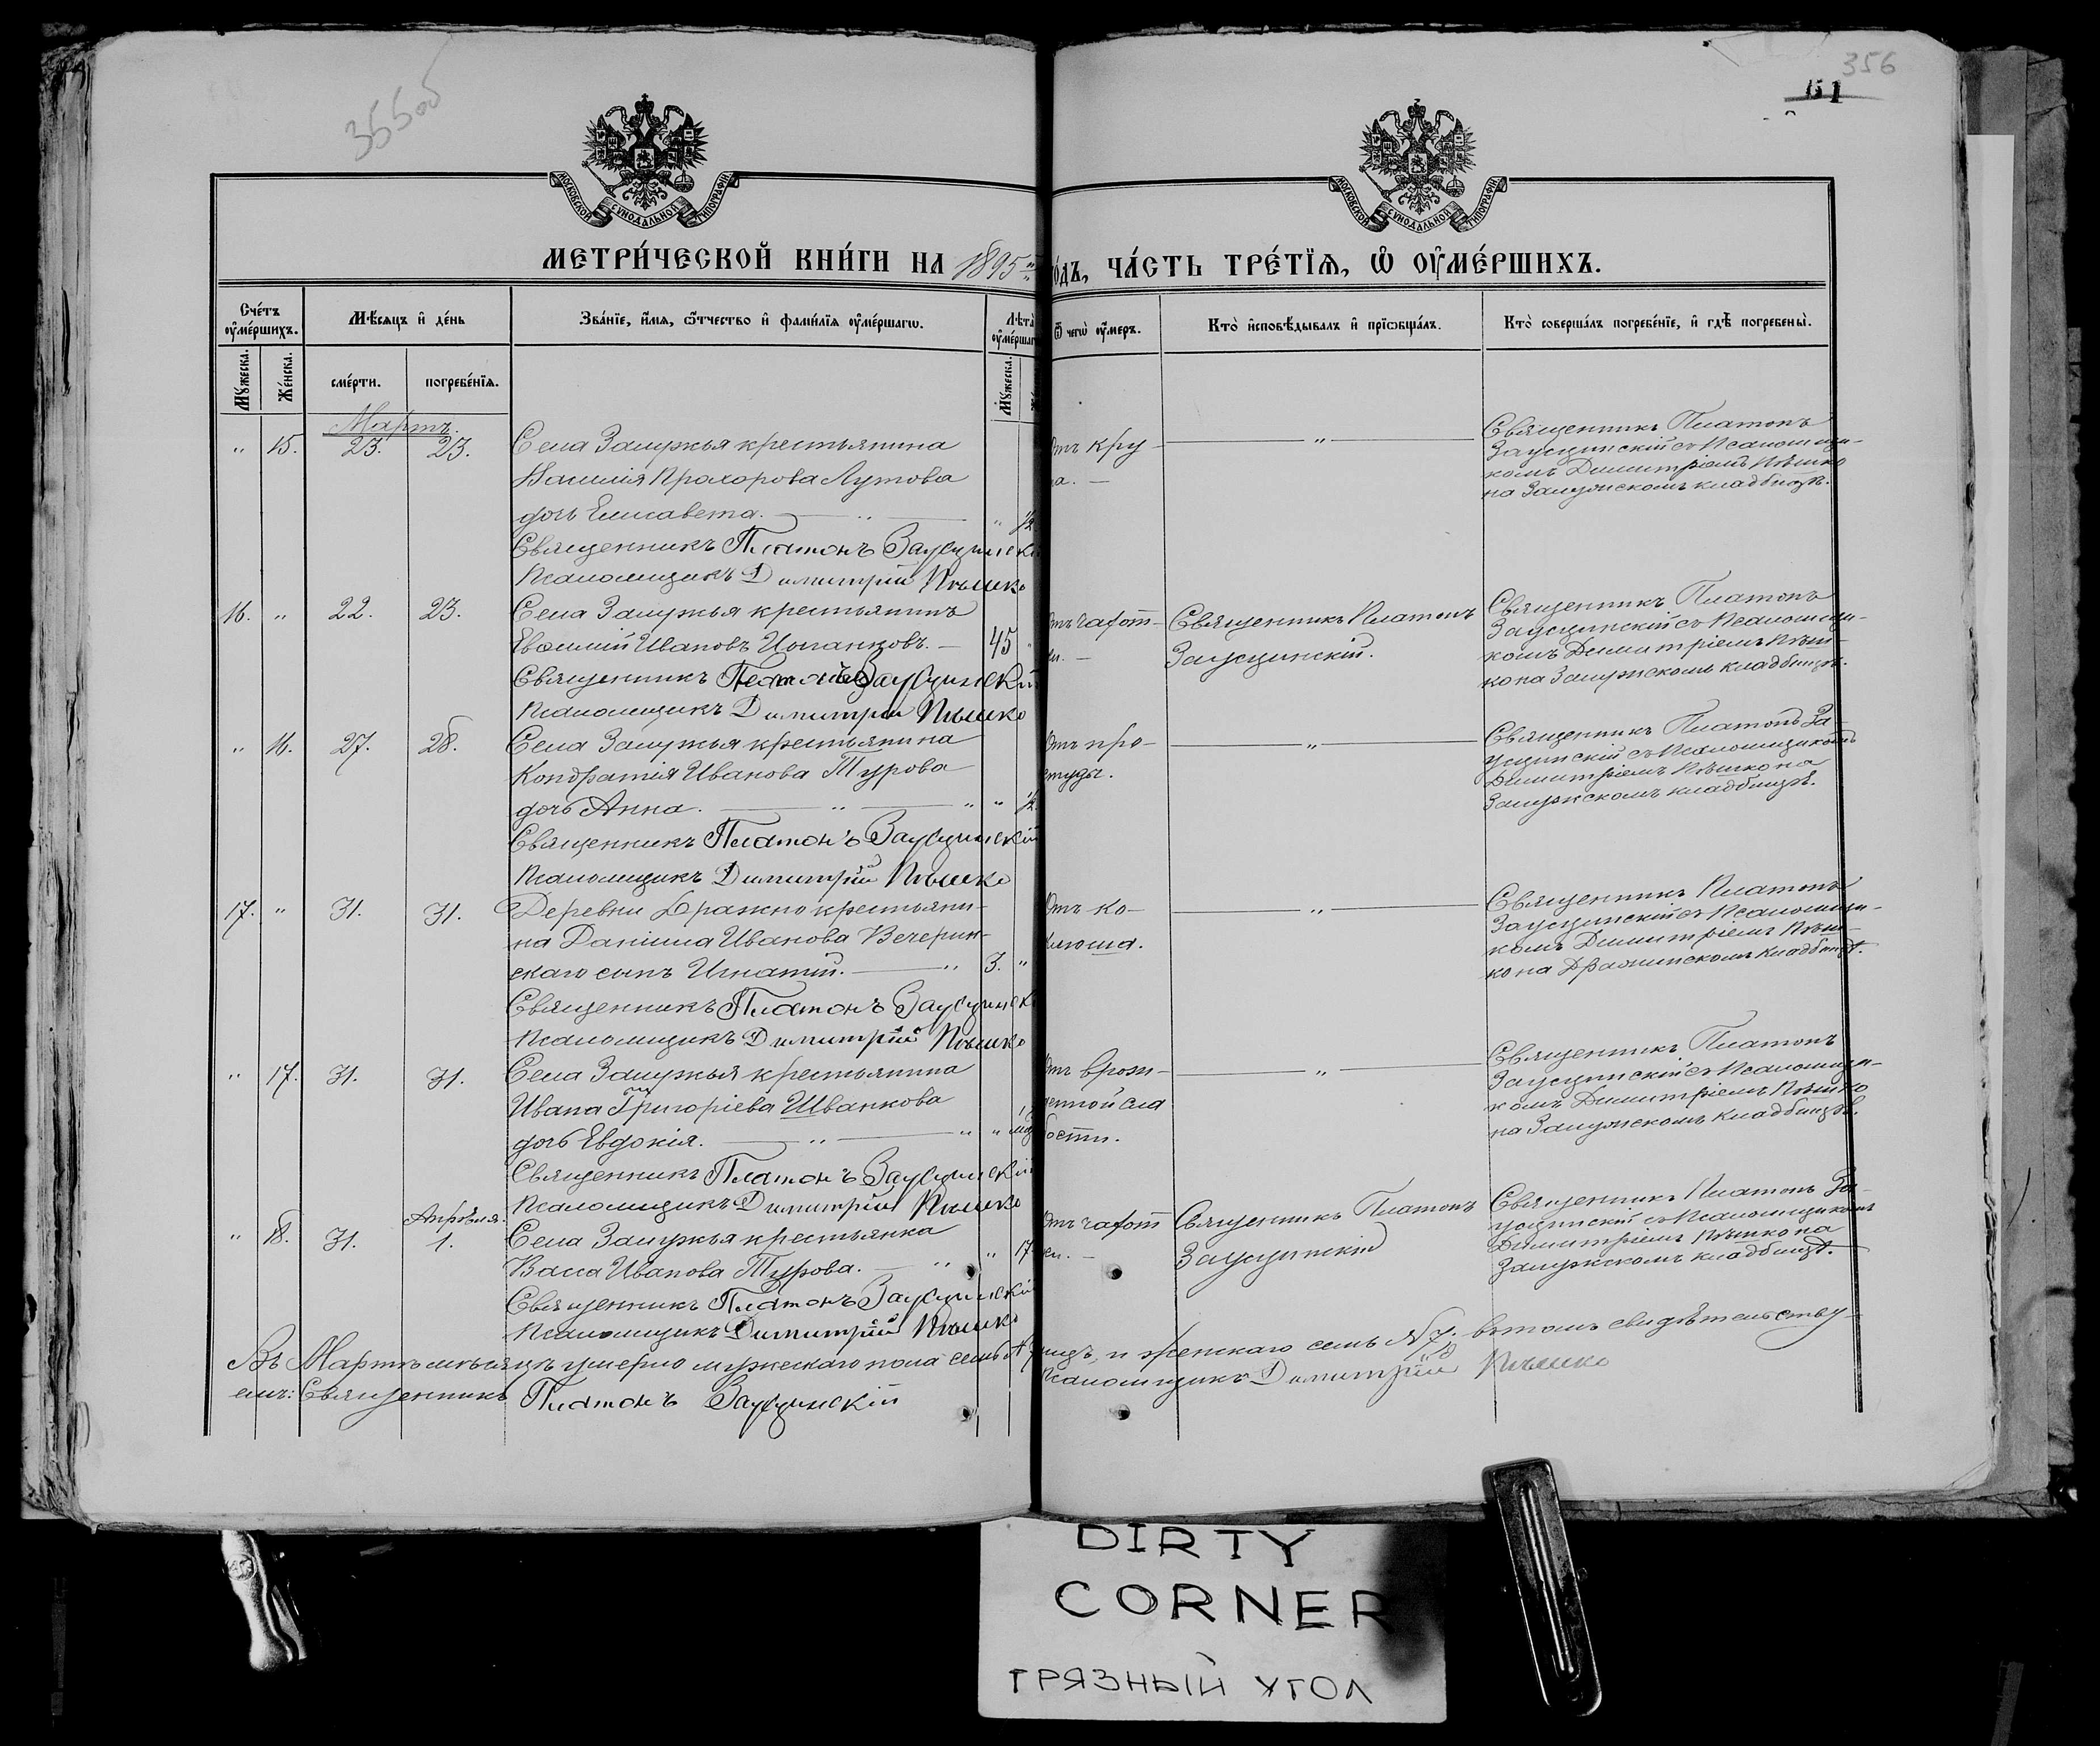 356
51
МОСКОВСКОЙ СѴНОДАЛЬНОЙ ТИПОГРАФІИ
МОСКОВСКОЙ СѴНОДАЛЬНОЙ ТИПОГРАФІИ
МЕТРИ́ЧЕСКОЙ КНИ́ГИ НА 1895
о́дъ, ЧА́СТЬ ТРЕ́ТІѦ, Ѡ҆ ОУ҆МЕ́РШИХЪ.
Сче́тъ оу҆ме́ршихъ.
Мѣ́сяцъ и҆ де́нь
Зва́нїе, и҆́мя, ѻ҆́тчество и҆ фами́лїя оу҆ме́ршагѡ.
Лѣта̀ оу҆ме́ршаг
Ѿ чегѡ̀ оу҆́меръ.
Кто̀ и҆сповѣ́дывалъ и҆ прїѡбща́лъ.
Кто̀ соверша́лъ погребе́нїе, и҆ гдѣ̀ погребены̀.
Мꙋ́жеска. Же́нска. сме́рти. погребе́нїя. Мꙋ́жеска.
Мартъ.
" 15. 23. 23. Села Залужья крестьянина
Василія Прохорова Лутова
дочь Елисавета. " " ½
Священникъ Платонъ Заусцинскі
Псаломщикъ Димитрій Пѣшко
отъ кру
па.
"
Священникъ Платонъ
Заусцинскій съ Псаломщи-
комъ Димитріемъ Пѣшко
на Залужскомъ кладбищѣ.
16. " 22. 23. Села Залужья крестьянинъ
Евфимій Ивановъ 45 "
Священникъ Платонъ Заусцинскій
Псаломщикъ Димитрій Пѣшко
отъ чахот-
ки.
Священникъ Платонъ
Заусцинскій.
Священникъ Платонъ
Заусцинскій съ Псаломщи-
комъ Димитріемъ Пѣш-
ко на Залужскомъ кладбищѣ.
" 16. 27. 28. Села Залужья крестьянина
Кондратія Иванова Турова
дочь Анна. " " " ½
Священникъ Платонъ Заусцинскій
Псаломщикъ Димитрій Пѣшко
Отъ про-
студы.
"
Священникъ Платонъ За-
усцинскій съ Псаломщикомъ
Димитріемъ Пѣшко на
Залужскомъ кладбищѣ.
17. " 31. 31. Деревни Дражно крестьяни-
на Даніила Иванова Вечерин-
скаго сынъ Игнатій. " 3. "
Священникъ Платонъ Заусцинск
Псаломщикъ Димитрій Пѣшко
Отъ ко-
клюша.
"
Священникъ Платонъ
Заусцинскій съ Псаломщи-
комъ Димитріемъ Пѣш-
ко на Дражнинскомъ кладбищѣ.
" 17. 31. 31. Села Залужья крестьянина
Ивана Григоріева Шванкова
дочь Евдокія. " " "
Священникъ Платонъ Заусцинскій
Псаломщикъ Димитрій Пѣшко
отъ врож-
денной сла
бости.
"
Священникъ Платонъ
Заусцинскій съ Псаломщи-
комъ Димитріемъ Пѣшко
на Залужскомъ кладбищѣ.
Апрѣля.
" 18. 31. 1. Села Залужья крестьянка
Васса Иванова Турова. " " 17
Священникъ Платонъ Заусцинскій
Псаломщикъ Димитрій Пѣшко
Отъ чахот
ки.
Священникъ Платонъ
Заусцинскій
Священникъ Платонъ За-
усцинскій съ Псаломщикомъ
Димитріемъ Пѣшко на
Залужскомъ кладбищѣ.
Въ Мартѣ мѣсяцѣ умерло мужескаго пола семь и женскаго семь № 7. въ томъ свидѣтельству-
емъ: Священникъ Платонъ Заусцинскій Псаломщикъ Димитрій Пѣшко
DIRTY
CORNER
ГРЯЗНЫЙ УГОЛ